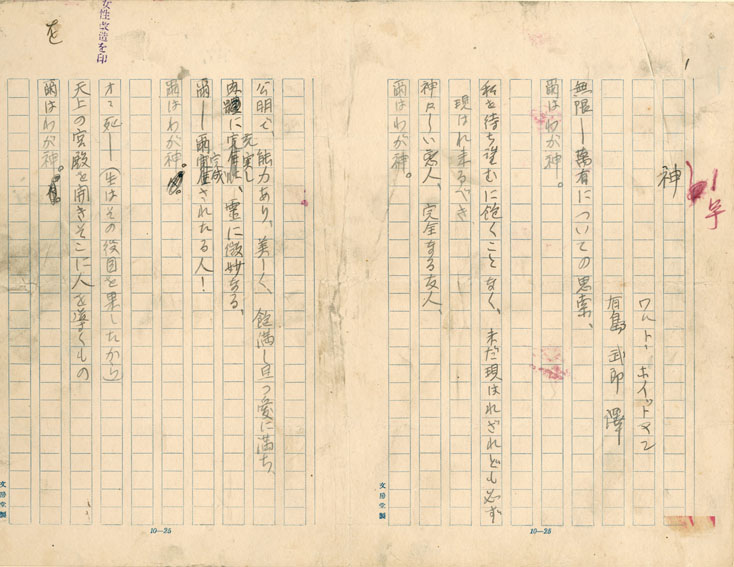 神
ワルト・ホイットマン
有島武郎譯
無限ー萬有についての思索、
爾はわが神。
私を待ち望むに飽くことなく、未だ現はれざれども必ず
現はれ来るべき
神々しい恋人、完全なる友人、
爾はわが神。
公明で、能力あり、美しく、飽満し且つ愛に満ち、
に充実し、霊に微妙なる、
爾ー爾完成されたる人!
爾はわが神。
オヽ死ー(生はその役目を果したから)
天上の宮殿を開きそこに人を導くもの
爾はわが神。
を
女性改造を印
1字
文房堂製
10—25
文房堂製
10—25